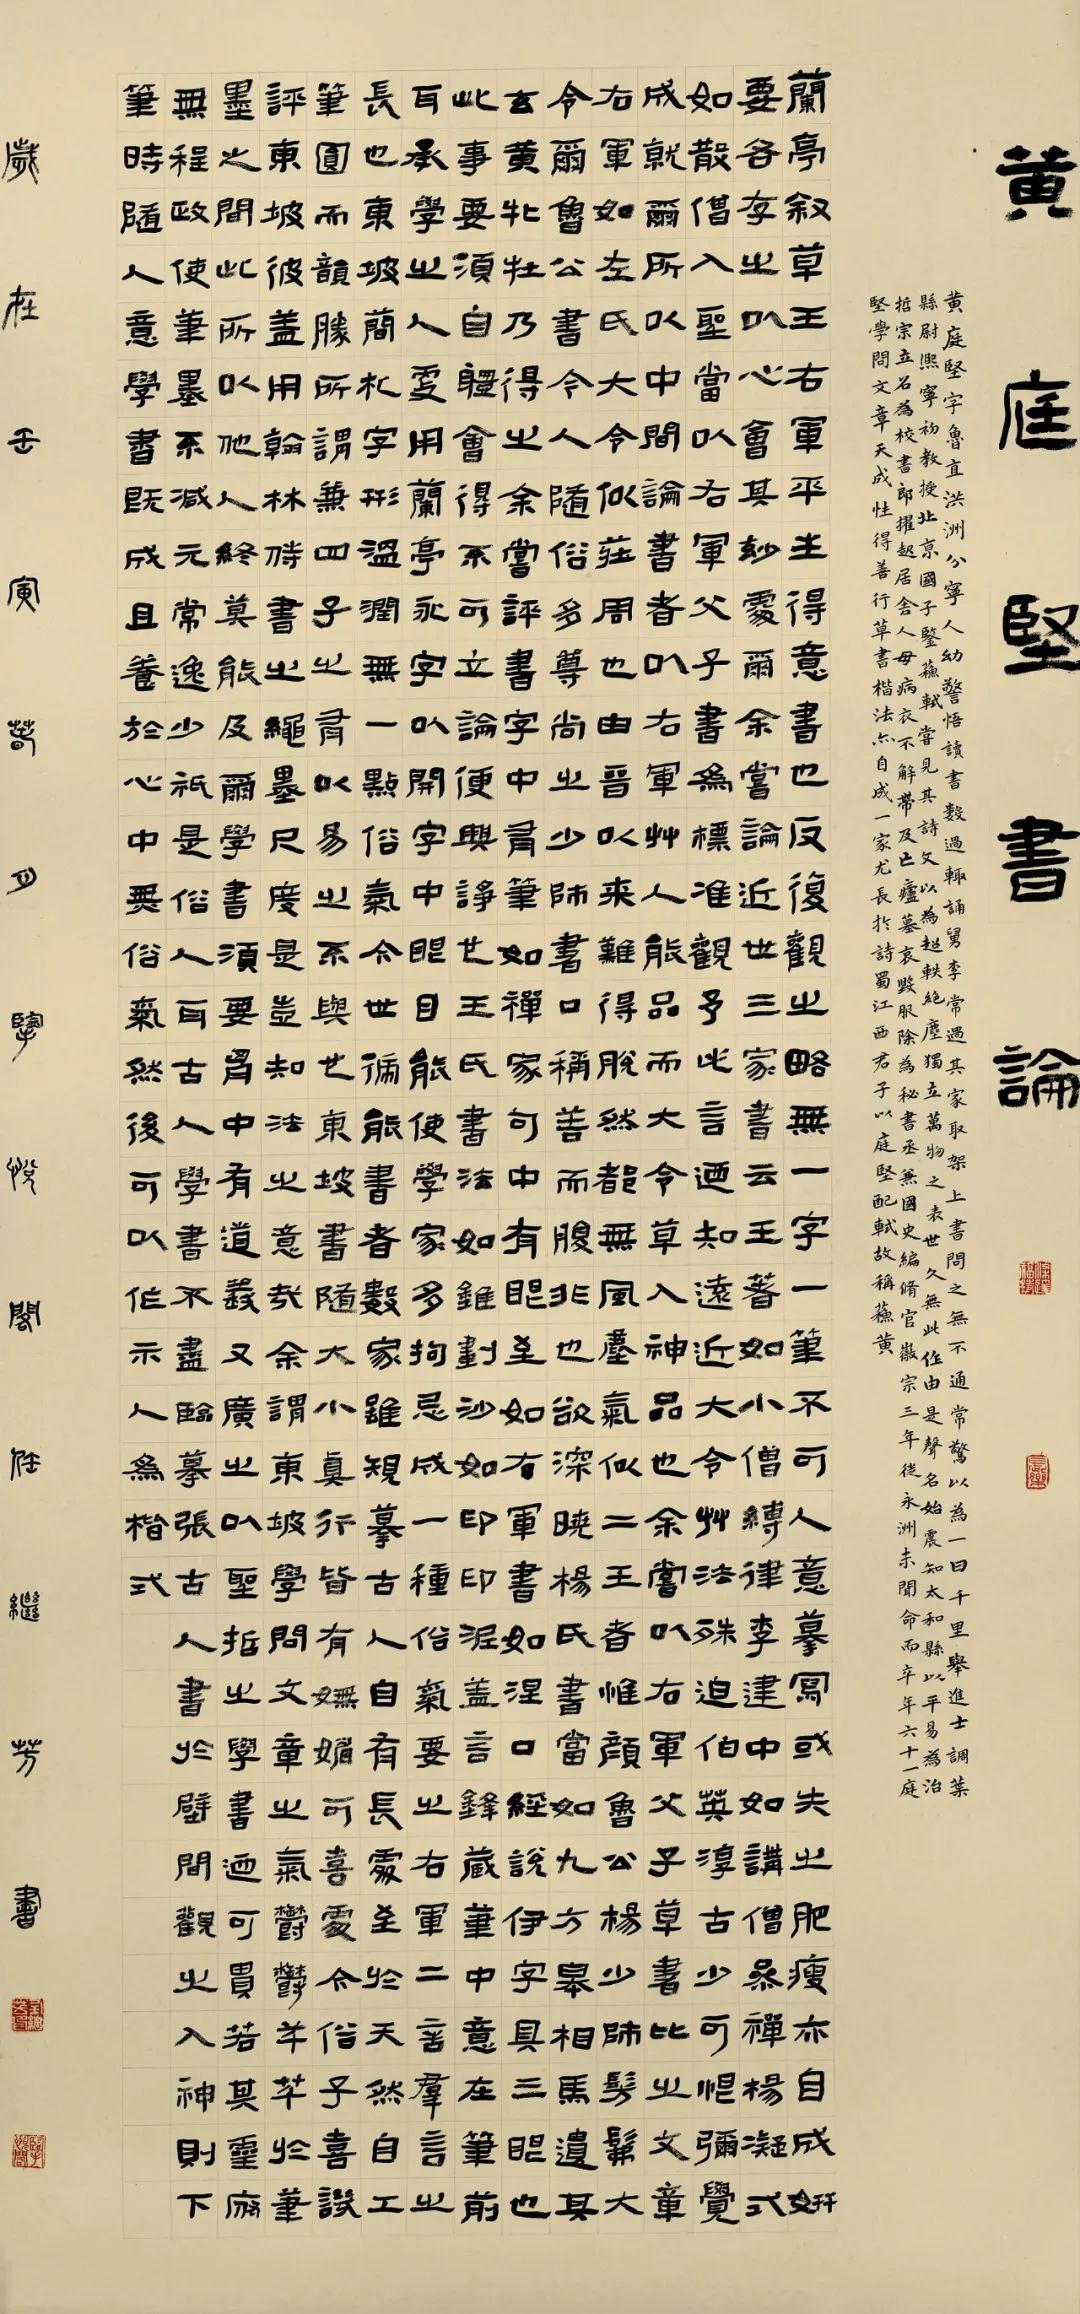 黄庭堅書論
黄庭堅字魯直洪洲分寧人幼警悟讀書數過輒誦舅李常過其家取架上書問之無不通常驚以為一日千里舉進士調葉
縣尉熙寧初教授北京國子監蘓軾嘗見其詩文以為超軼絕塵獨立萬物之表世久無此作由是聲名始震知太和縣以平易為治
哲宗立名為校書郎擢起居舍人母病衣不解帶及亡廬墓哀毀服除為秘書丞兼國史編脩官徽宗三年徙永洲未聞命而卒年六十一庭
堅學問文章天成性得善行草書楷法亦自成一家尤長於詩蜀江西君子以庭堅配軾故稱蘓黄
蘭亭叙草王右軍平生得意書也反復觀之略無一字一筆不可人意摹寫或失之肥瘦亦自成妍
要各存之以心會其妙處爾余嘗論近世三家書云王著如小僧縛律李建中如講僧參禪楊凝式
如散僧入聖當以右軍父子書為標准觀予此言迺知遠近大令艸法殊迫伯英淳古少可恨彌覺
成就爾所以中間論書者以右軍艸人能品而大令草入神品也余嘗以右軍父子草書比之文章
右軍如左氏大令似莊周也由晉以来難得脫然都無風塵氣似二王者惟顏魯公楊少師髣髴大
令爾魯公書令人隨俗多尊尚之少師書口稱善而腹非也欲深曉楊氏書當如九方皋相馬遺其
玄黄牝牡乃得之余嘗評書字中有筆如禪家句中有眼至如右軍書如涅口經說伊字具三眼也
此事要須自體會得不可立論便興諍世王氏書法如錐劃沙如印印泥盖言鋒藏筆中意在筆前
耳承學之人更用蘭亭永字以開字中眼目能使學家多拘忌成一種俗氣要之右軍二言羣言之
長也東坡簡札字形溫潤無一點俗氣今世稱能書者數家雖規摹古人自有長處至於天然自工
筆圓而韻勝所謂兼四子之有以易之不與也東坡書隨大小真行皆有嫵媚可喜處今俗子喜譏
評東坡彼盖用翰林侍書之繩墨尺度是豈知法之意哉余謂東坡學問文章之氣鬱鬱芊芊於筆
墨之間此所以他人終莫能及爾學書須要胷中有道義又廣之以聖哲之學書迺可貴若其靈府
無程政使筆墨不減元常逸少祇是俗人耳古人學書不盡臨摹張古人書於壁間觀之入神則下
筆時隨人意學書既成且養於心中無俗氣然後可以作示人為楷式
歲在壬寅荀月擘悅閣任繼芳書